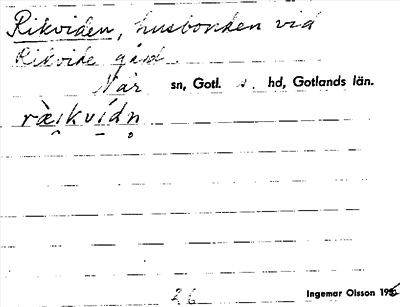 Rikviden, husbonden vid
Rikvide gård
När sn, Gotl. s. hd, Gotlands län.
ràikvidn̥
26 Ingemar Olsson 19